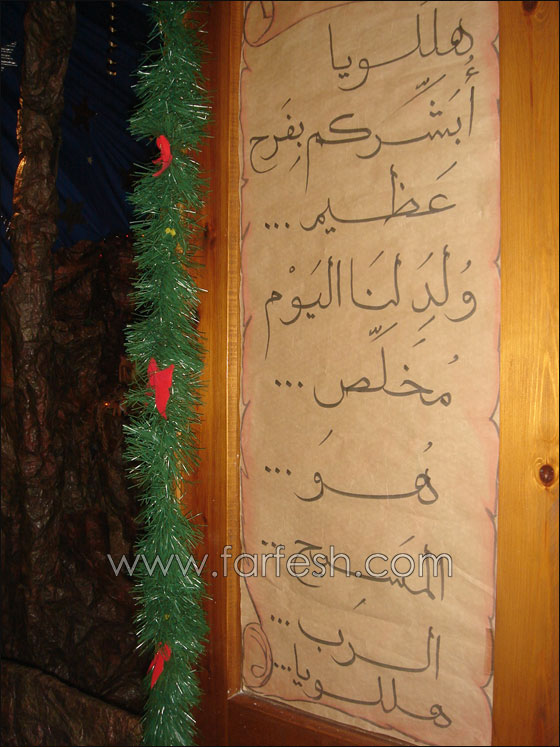 هللويا
أُبَشِّركم بِفَرح
عَظيم ...
وُلِدَ لنَا اليَوْم
مُخَلِّص ...
هُوَ ...
المَسيح ...
الرَب ...
هللويا ...
www.farfesh.com